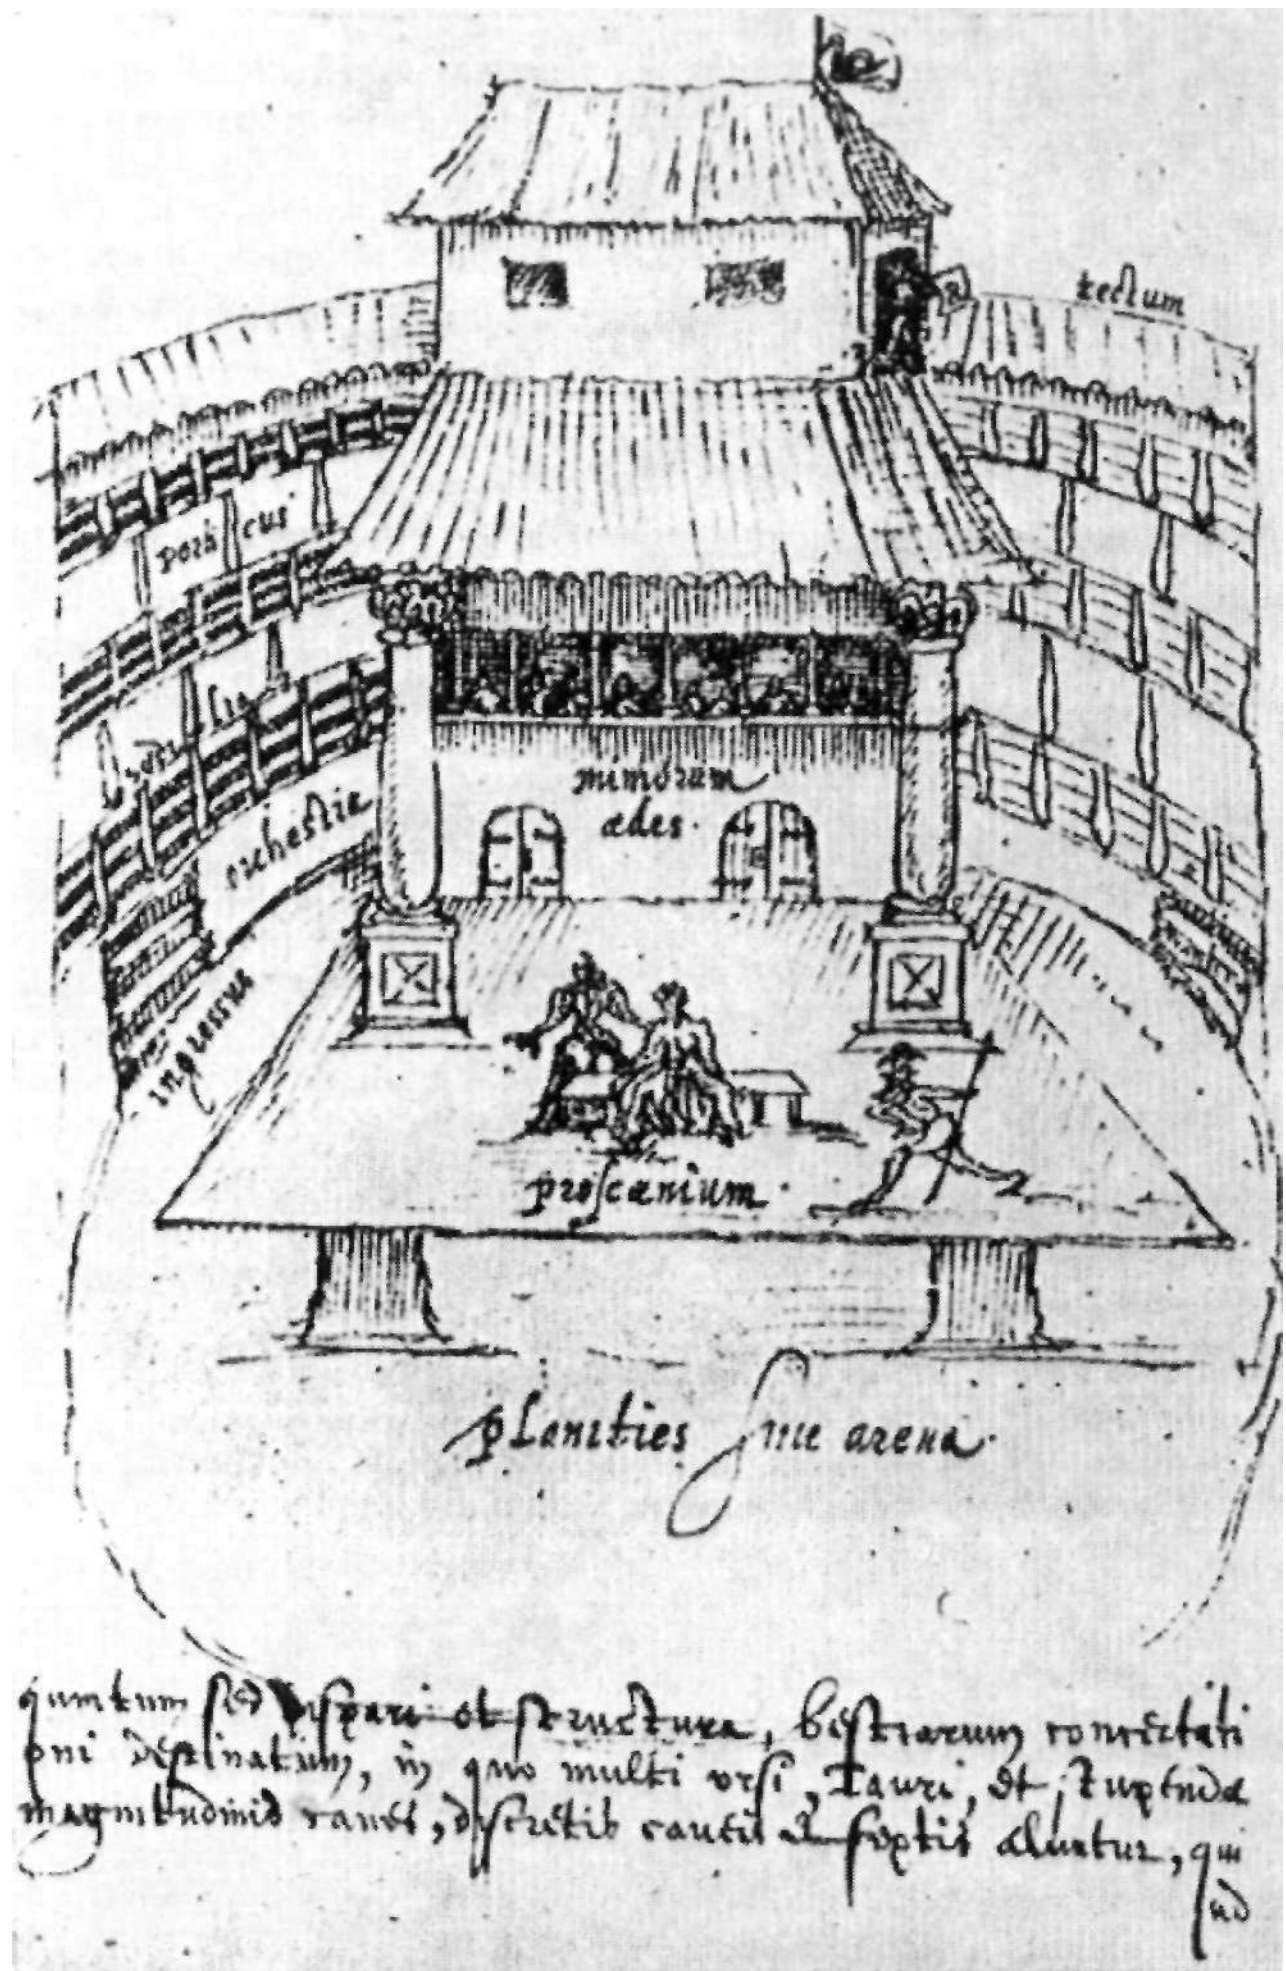 tectum
porticus
sedilia
orchestra
mimorum
ædes.
ingressus
proscænium.
planities siue arena.
quintum sed dispari et structura, bestiarum concertati
oni destinatum, in quo multi vrsi, Tauri, et stupendæ
magnitudinis canes, discretis caueis et septis aluntur, qui
ad